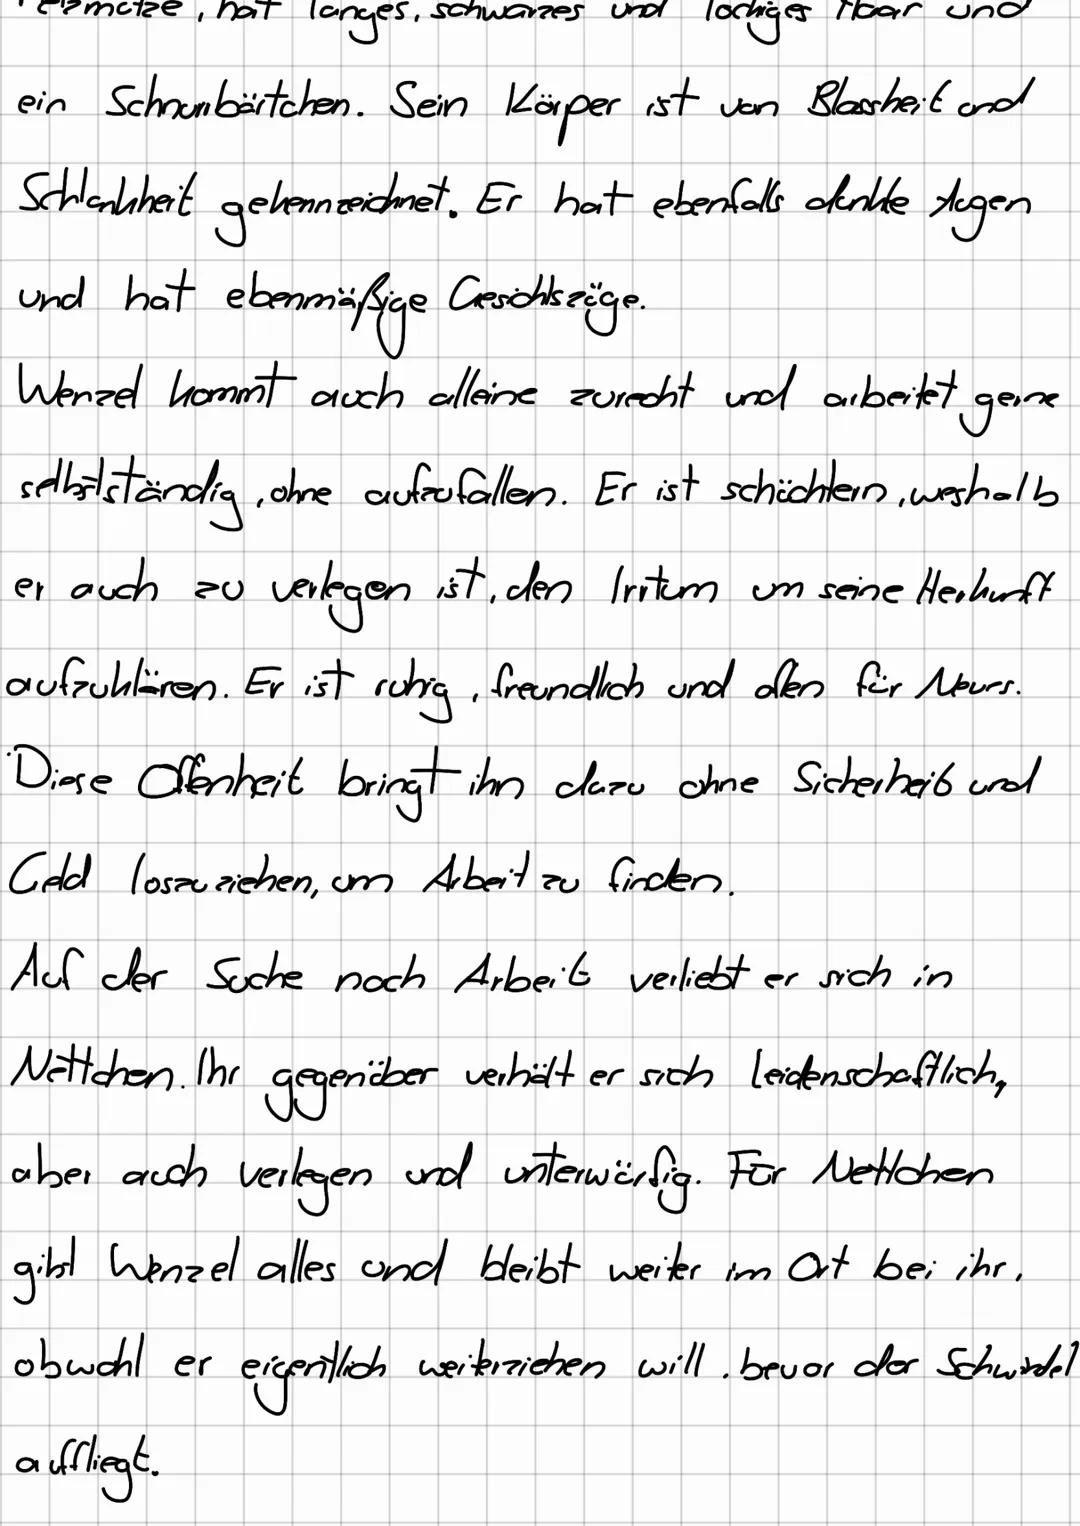 Pelzmütze, hat langes, schwarzes und lockiges Haar und
ein Schnurrbärtchen. Sein Körper ist von Blassheit und
Schlankheit gekennzeichnet. Er hat ebenfalls dunkle Augen
und hat ebenmäßige Gesichtszüge.
Wenzel kommt auch alleine zurecht und arbeitet gerne
selbstständig, ohne aufzufallen. Er ist schüchtern, weshalb
er auch zu verlegen ist, den Irrtum um seine Herkunft
aufzuklären. Er ist ruhig, freundlich und offen für Neues.
Diese Offenheit bringt ihn dazu ohne Sicherheit und
Geld loszuziehen, um Arbeit zu finden.
Auf der Suche nach Arbeit verliebt er sich in
Nettchen. Ihr gegenüber verhält er sich leidenschaftlich,
aber auch verlegen und unterwürfig. Für Nettchen
gibt Wenzel alles und bleibt weiter im Ort bei ihr,
obwohl er eigentlich weiterziehen will, bevor der Schwindel
auffliegt.